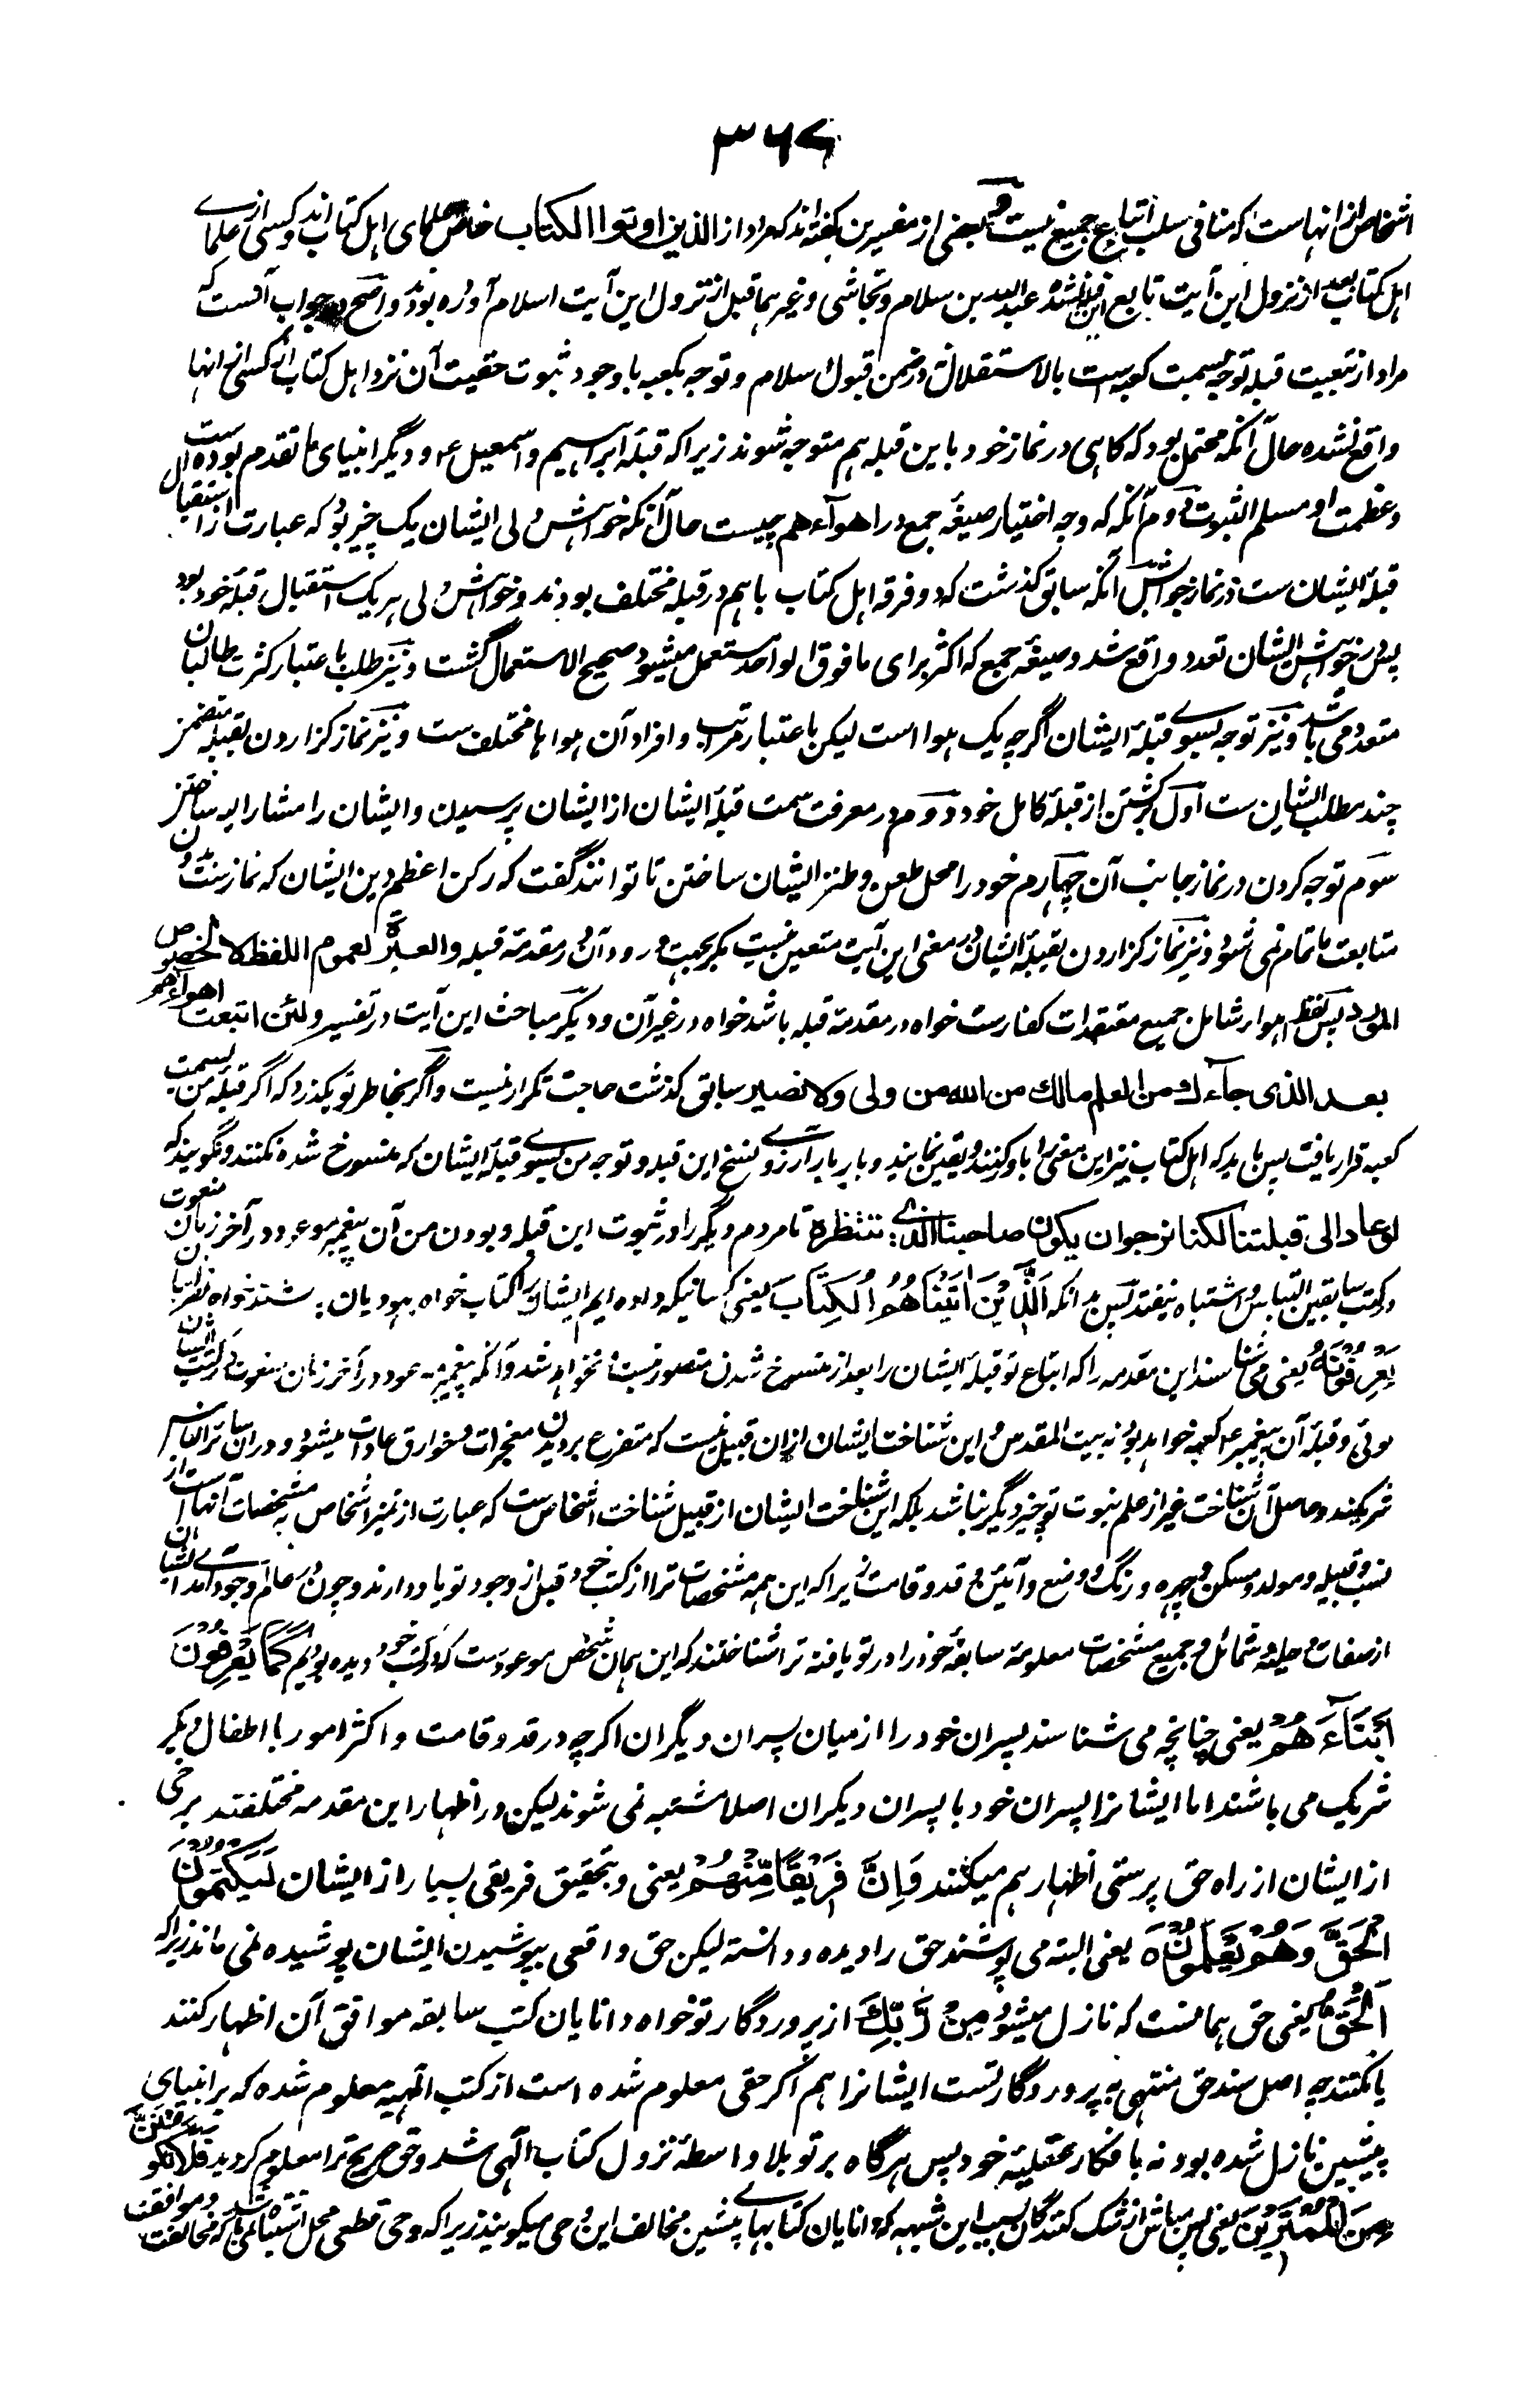 ۳۶۷
اشخاص ازانهاست که منافی سلب اتباع جمیع نیست و بعضی از مفسرین گفته‌اند که مراد از الذین اوتوا الکتاب خاص علمای اهل کتاب‌اند و کسی از علمای
اهل کتاب بعد از نزول این آیت تابع این قبله نشده عبدالله بن سلام و نجاشی و غیرهما قبل از نزول این آیت اسلام آورده بودند و اصح در جواب آنست که
مراد از تبعیت قبله توجه بسمت کعبه است بالاستقلال نه در ضمن قبول اسلام و توجه بکعبه باوجود ثبوت حقیت آن نزد اهل کتاب از کسی از انها
واقع نشده حال آنکه محتمل بود که گاهی در نماز خود باین قبله هم متوجه شوند زیرا که قبلهٔ ابراهیم و اسمعیل ع و دیگر انبیای ما تقدم بوده است
و عظمت او مسلم الثبوت دوم آنکه وجه اختیار صیغهٔ جمع در اهوآءهم چیست حال آنکه خواهش دلی ایشان یک چیز بود که عبارت از استقبال
قبلهٔ ایشان ست در نماز جوابش آنکه سابق گذشت که دو فرقه اهل کتاب باهم در قبله مختلف بودند و خواهش دلی هر یک استقبال قبلهٔ خود بود
پس در خواهش ایشان تعدد واقع شد و صیغهٔ جمع که اکثر برای ما فوق الواحد مستعمل میشود صحیح الاستعمال گشت و نیز طلب باعتبار کثرت طالبان
متعدد می باشد و نیز توجه بسوی قبلهٔ ایشان اگرچه یک هوا است لیکن باعتبار مراتب و افراد آن هواها مختلف ست و نیز نماز گزاردن بقبله متضمن
چند مطلب ایشان ست اول برگشتن از قبلهٔ کامل خود دوم در معرفت سمت قبلهٔ ایشان از ایشان پرسیدن و ایشان را مشارالیه ساختن
سوم توجه کردن در نماز جانب آن چهارم خود را محل طعن و طنز ایشان ساختن تا توانند گفت که رکن اعظم دین ایشان که نماز ست بدون
متابعت ما تمام نمی شود و نیز نماز گزاردن بقبلهٔ ایشان در معنی این آیت متعین نیست مگر بجهت ورود آن در مقدمهٔ قبله والعبرة لعموم اللفظ لا لخصوص
المورد پس لفظ اهوا شامل جمیع معتقدات کفار ست خواه در مقدمهٔ قبله باشد خواه در غیر آن و دیگر مباحث این آیت در تفسیر ولئن اتبعت اهواءهم
بعد الذی جآءك من العلم مالك من الله من ولی ولا نصیر سابق گذشت حاجت تکرار نیست و اگر بخاطر تو بگذرد که اگر قبلهٔ من بسمت
کعبه قرار یافت پس باید که اهل کتاب نیز این معنی را باور کنند و یقین نمایند و بار بار آرزوی نسخ این قبله و توجه من بسوی قبلهٔ ایشان که منسوخ شده نکنند و نگویند که
لو عاد الی قبلتنا لکنا نرجوا ان یکون صاحبنا الذی ننتظره تا مردم دیگر را در ثبوت این قبله و بودن من آن پیغمبر موعود در آخر زبان منعوت
در کتب سابقین التباس و اشتباه نیفتد پس بدانکه اَلَّذِیْنَ اٰتَیْنٰهُمُ الْکِتٰبَ یعنی کسانیکه داده ایم ایشان را کتاب خواه یهودیان باشند خواه نصرانیان
یَعْرِفُوْنَهٗ یعنی می شناسند این مقدمه را که اتباع تو قبلهٔ ایشان را بعد از منسوخ شدن متصور نیست و نخواهد شد و آنکه پیغمبر موعود در آخر زمان منعوت در کتب ایشان
توئی و قبلهٔ آن پیغمبر ع کعبه خواهد بود نه بیت المقدس و این شناخت ایشان ازان قبیل نیست که متفرع بر دیدن معجزات و خوارق عادات میشود و دران سائر الناس
شریکند و حاصل آن شناخت غیر از علم نبوت تو چیز دیگر نباشد بلکه این شناخت ایشان از قبیل شناخت اشخاص ست که عبارت از تمیز اشخاص بمشخصات آنهاست از
نسب و قبیله و مولد و مسکن و چهره و رنگ و وضع و آئین و قد و قامت زیرا که این همه مشخصات ترا از کتب خود قبل از وجود تو یاد دارند و چون در عالم وجود آمدی ایشان
از صفات و حلیه و شمائل و جمیع مشخصات معلومهٔ سابقهٔ خود را در تو یافته ترا شناختند که این همان شخص موعود ست که در کتب خود دیده بودیم کَمَا یَعْرِفُوْنَ
اَبْنَآءَهُمْ یعنی چنانچه می شناسند پسران خود را از میان پسران دیگران اگرچه در قد و قامت و اکثر امور با اطفال دیگر
شریک می باشند اما ایشانرا پسران خود با پسران دیگران اصلا مشتبه نمی شوند لیکن در اظهار این مقدمه مختلفند برخی
از ایشان از راه حق پرستی اظهار هم میکنند وَاِنَّ فَرِیْقًا مِّنْهُمْ یعنی و بتحقیق فریقی بسیار از ایشان لَیَکْتُمُوْنَ
الْحَقَّ وَهُمْ یَعْلَمُوْنَ یعنی البته می پوشند حق را دیده و دانسته لیکن حق واقعی بپوشیدن ایشان پوشیده نمی ماند زیرا که
اَلْحَقُّ یعنی حق همانست که نازل میشود مِنْ رَّبِّكَ از پروردگار تو خواه دانایان کتب سابقه موافق آن اظهار کنند
یا نکنند چه اصل سند حق منتهی به پروردگار تست ایشانرا هم اگر حقی معلوم شده است از کتب الهیه معلوم شده که بر انبیای
پیشین نازل شده بود نه بافکار عقلیهٔ خود پس هرگاه بر تو بلاواسطهٔ نزول کتاب الهی شد و حق صریح ترا معلوم گردید فَلَا تَکُوْنَنَّ
مِنَ الْمُمْتَرِیْنَ یعنی پس مباش از شک کنندگان بسبب این شبهه که دانایان کتابهای پیشین مخالف این وحی میگویند زیرا که وحی قطعی محل اشتباه نمی باشد که مخالفت و موافقت